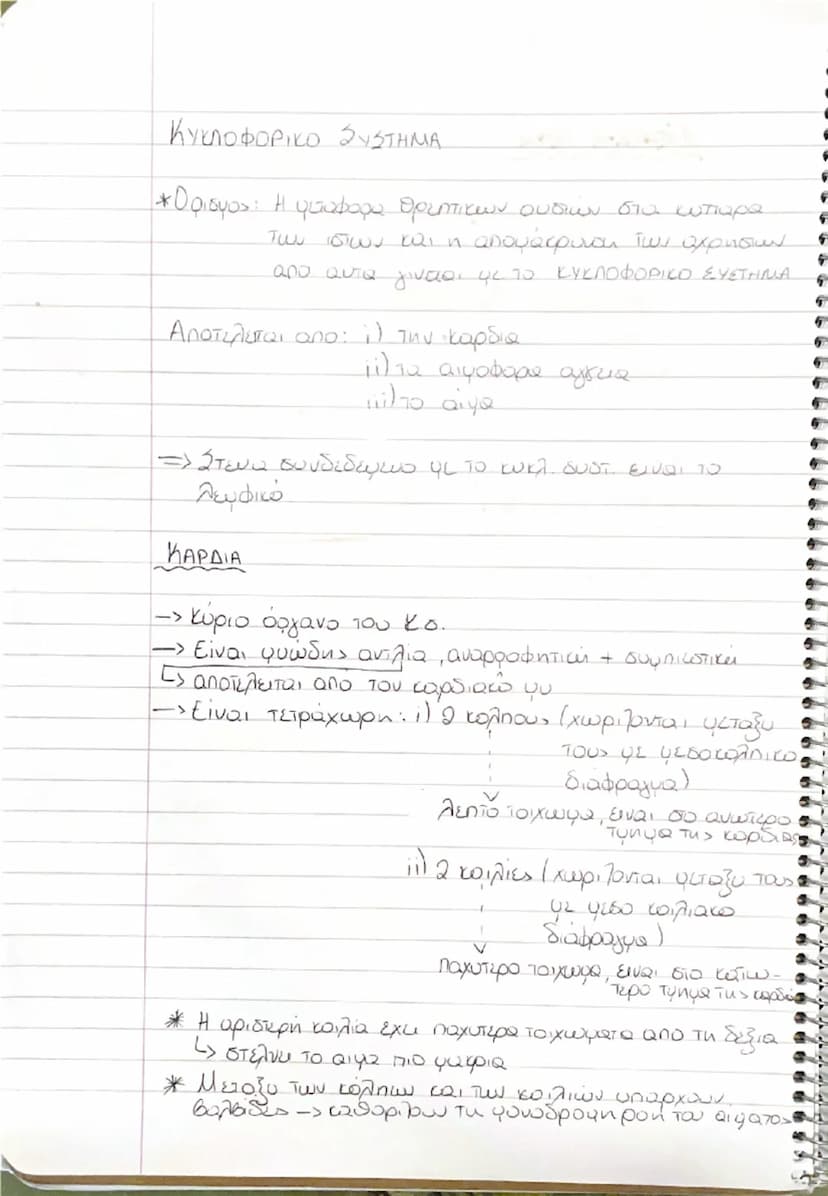 ΚΥΚΛΟΦΟΡΙΚΟ ΣΥΣΤΗΜΑ
*Ορισμος: Η μεταφορα θρεπτικων ουσιών στα κυτταρα
των ιστων και η απομάκρυνση των αχρηστων
απο αυτα γινεται με το ΚΥΚΛΟΦΟΡΙΚΟ ΣΥΣΤΗΜΑ
Αποτελειται απο: i) την καρδια
ii) τα αιμοφορα αγγεια
iii) το αιμα
=> Στενα συνδεδεμενο με το κυκλ. συστ. ειναι το
λεμφικό
ΚΑΡΔΙΑ
-> Κύριο όργανο του Κσ.
-> Είναι μυώδης αντλία, αναρροφητική + συμπιεστική
↳ αποτελειται απο τον καρδιακό μυ
-> Είναι τετράχωρη: i) 2 κολπους (χωριζονται μεταξυ
τους με μεσοκολπικο
διάφραγμα)
λεπτό τοιχωμα, ειναι στο ανωτερο
τμημα της καρδιας
ii) 2 κοιλίες (χωριζονται μεταξυ τους
με μεσο κοιλιακο
διάφραγμα)
παχυτερο τοιχωμα, ειναι στο κατω-
τερο τμημα της καρδιάς
* Η αριστερή κοιλία έχει παχυτερα τοιχωματα απο τη δεξια
↳ στέλνει το αιμα πιο μακρια
* Μεταξυ των κόλπων και των κοιλιών υπαρχουν
βαλβίδες -> καθοριζουν τη μονοδρομη ροη του αιματος